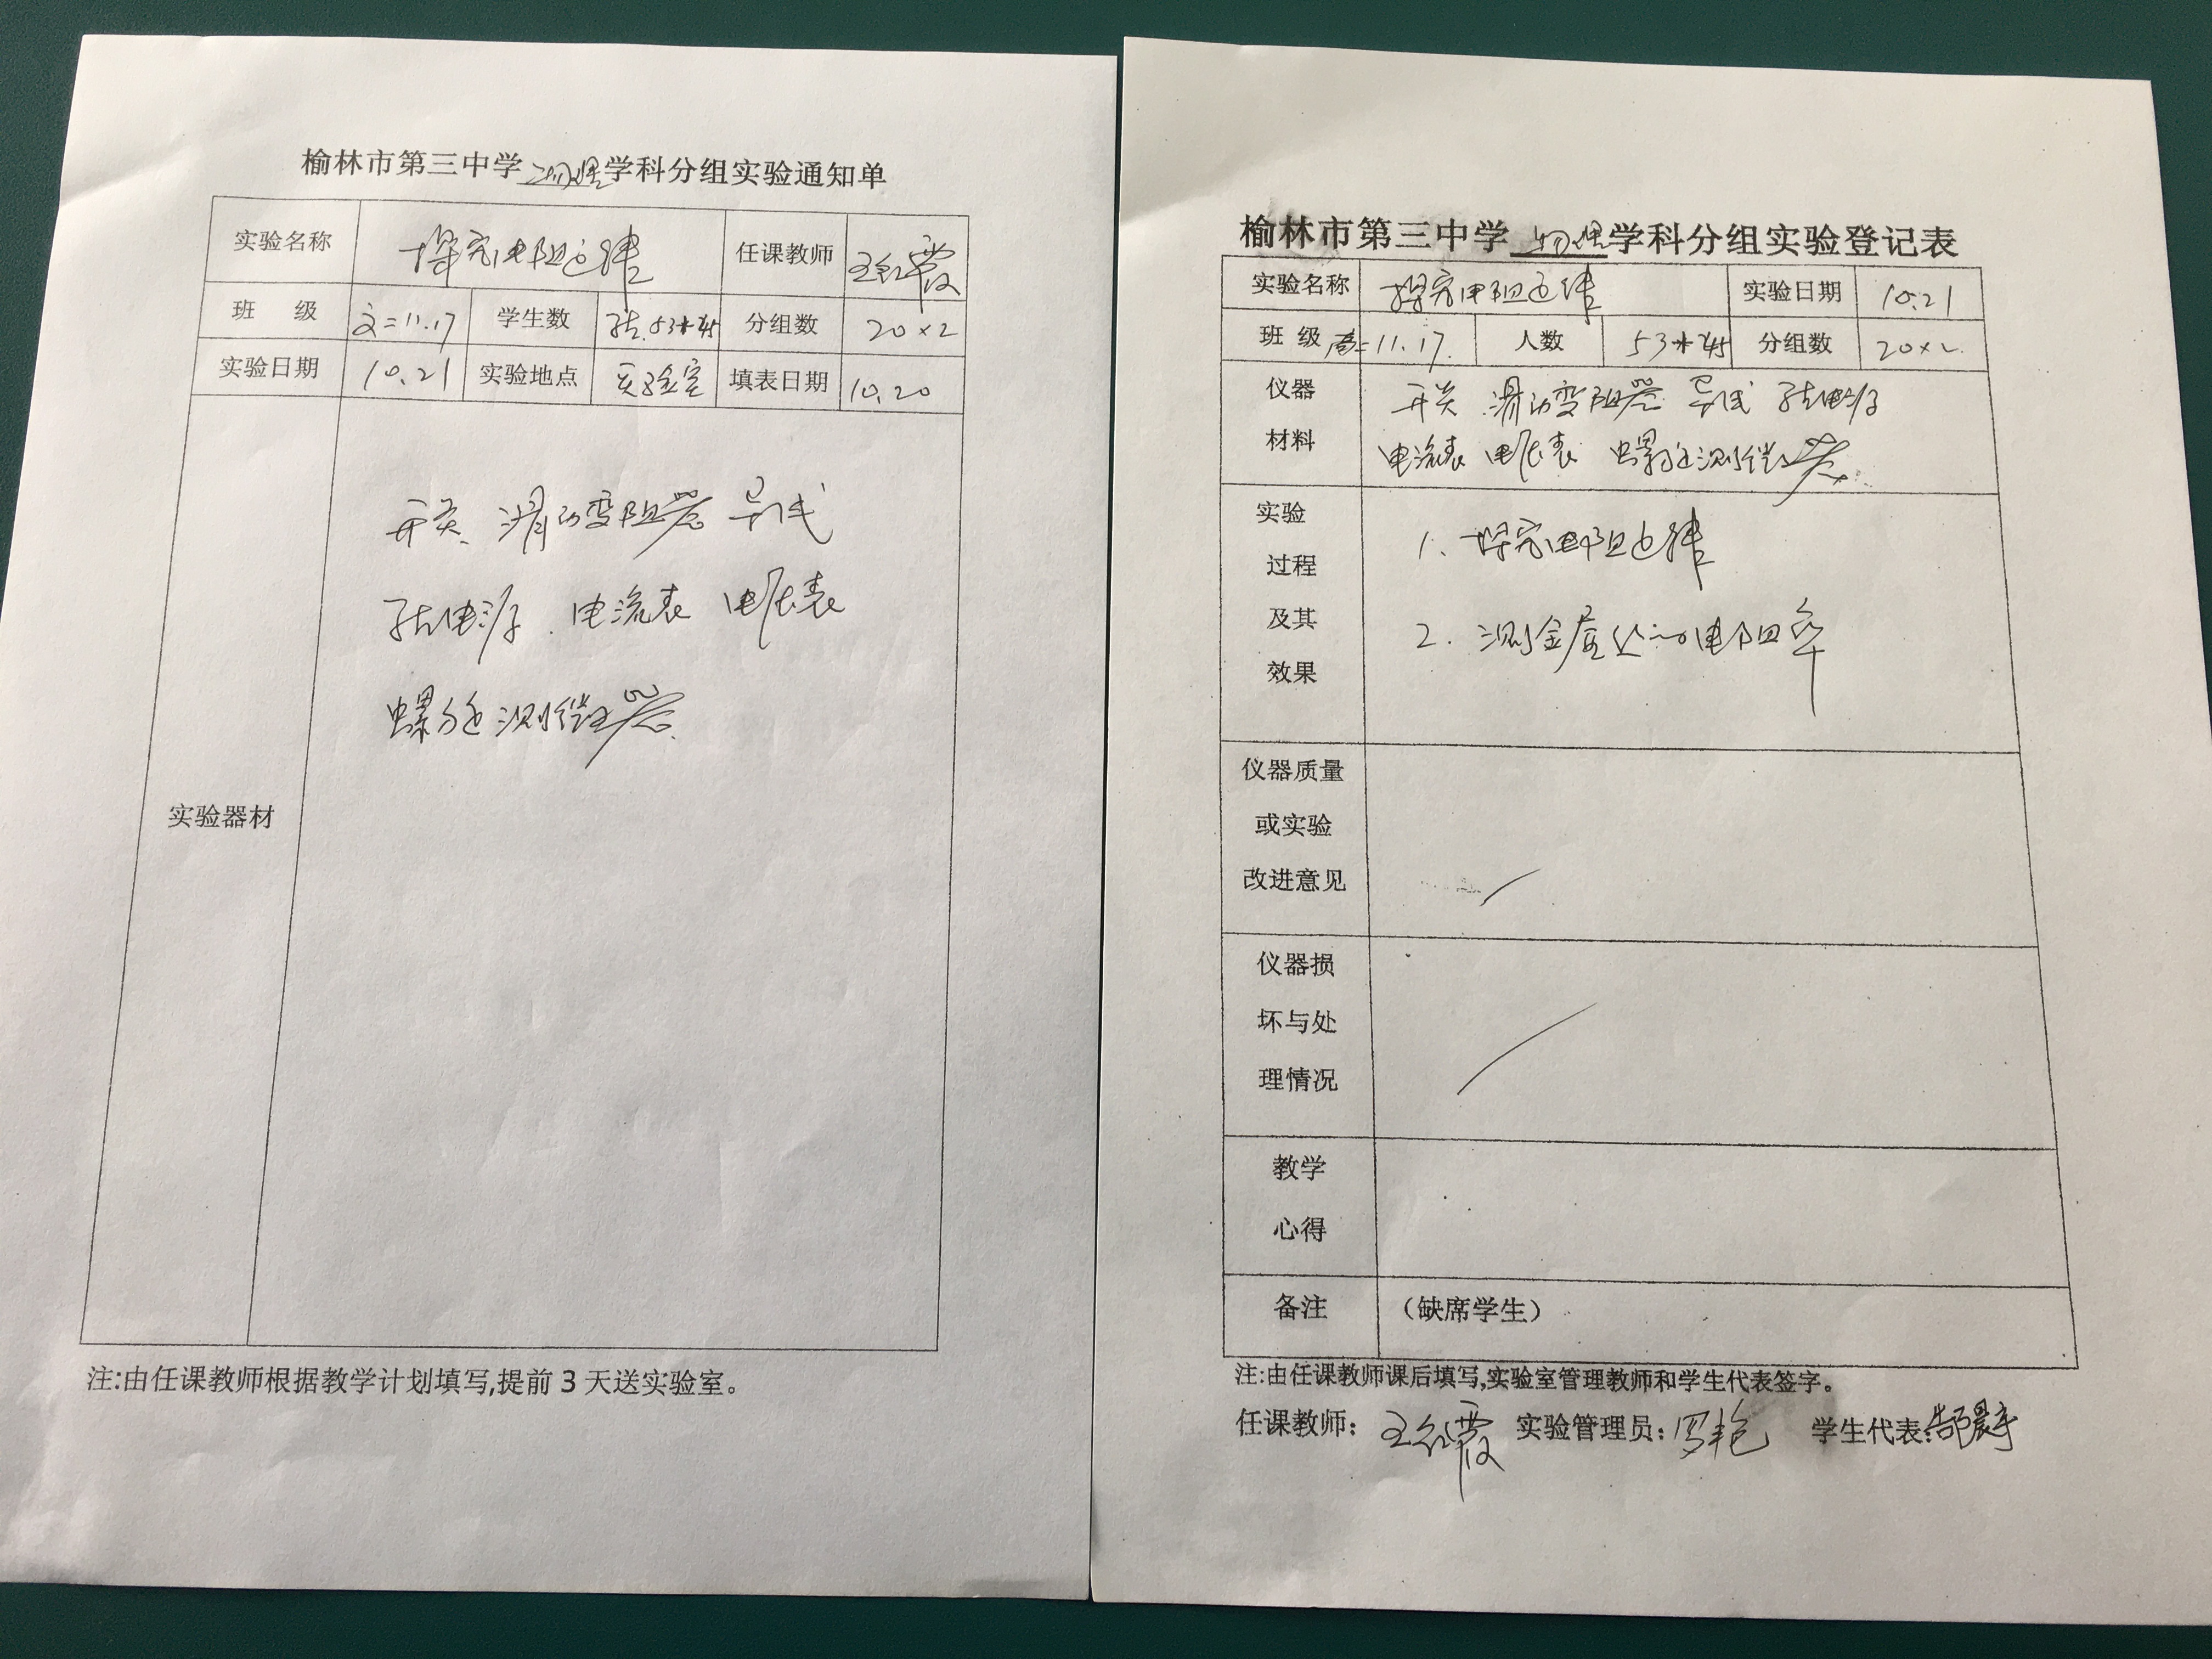 榆林市第三中学 物理 学科分组实验通知单
实验名称 探究电阻定律 任课教师 王红霞
班 级 高二11.17 学生数 53+45 分组数 20×2
实验日期 10.21 实验地点 实验室 填表日期 10.20
实验器材
开关 滑动变阻器 导线
学生电源 电流表 电压表
螺旋测微器
注:由任课教师根据教学计划填写,提前 3 天送实验室。
榆林市第三中学 物理 学科分组实验登记表
实验名称 探究电阻定律 实验日期 10.21
班 级 高二11.17. 人数 53+45 分组数 20×2
仪器 开关 滑动变阻器 导线 学生电源
材料 电流表 电压表 螺旋测微器
实验
过程
及其
效果
1. 探究电阻定律
2. 测金属丝的电阻率
仪器质量
或实验
改进意见
仪器损
坏与处
理情况
教学
心得
备注 （缺席学生）
注:由任课教师课后填写,实验室管理教师和学生代表签字。
任课教师: 王红霞 实验管理员: 罗艳 学生代表: